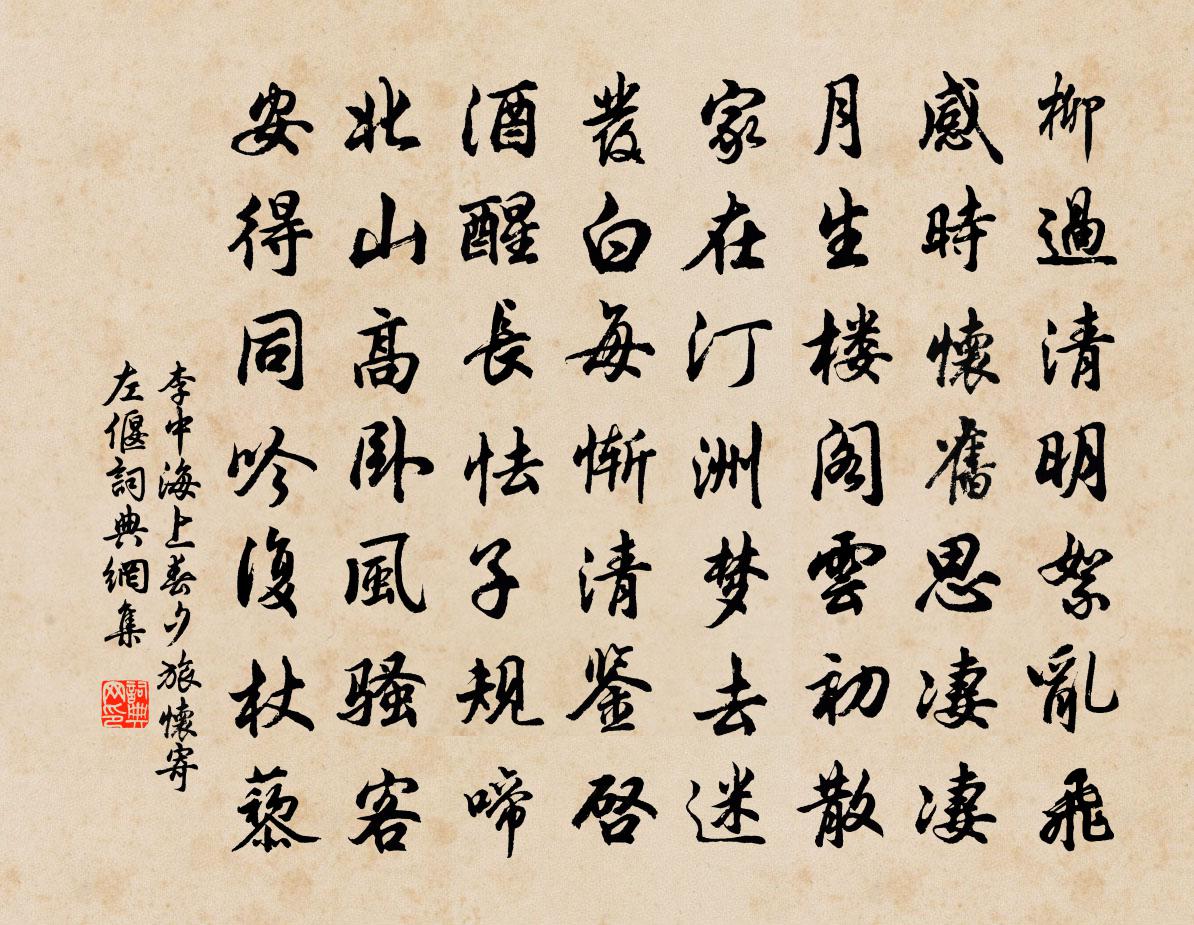 柳過清明絮亂飛
感時懷舊思凄凄
月生楼阁雲初散
家在汀洲梦去迷
发白每慚清鉴启
酒醒長怯子規啼
北山高卧風骚客
安得同吟復杖藜
李中海上春夕旅懷寄
左偃詞典網集
詞典
网印